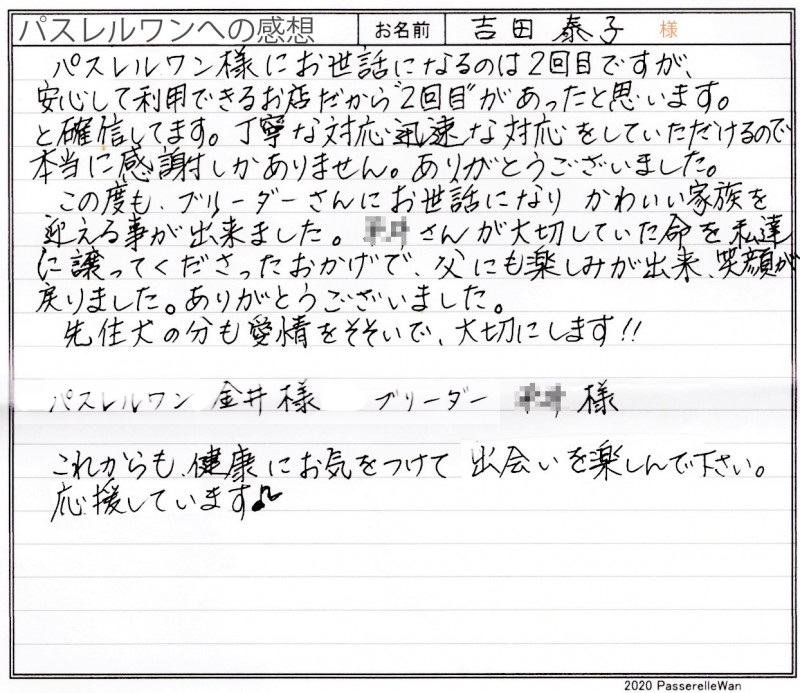 パスレルワンへの感想 お名前 吉田 泰子 様
パスレルワン様にお世話になるのは2回目ですが、
安心して利用できるお店だから"2回目"があったと思います。
と確信してます。丁寧な対応迅速な対応をしていただけるので
本当に感謝しかありません。ありがとうございました。
この度も、ブリーダーさんにお世話になり かわいい家族を
迎える事が出来ました。 さんが大切していた命を私達
に譲ってくださったおかげで、父にも楽しみが出来、笑顔が
戻りました。ありがとうございました。
先住犬の分も愛情をそそいで、大切にします!!
パスレルワン 金井様 ブリーダー 様
これからも、健康にお気をつけて 出会いを楽しんで下さい。
応援しています♪
2020 PasserelleWan